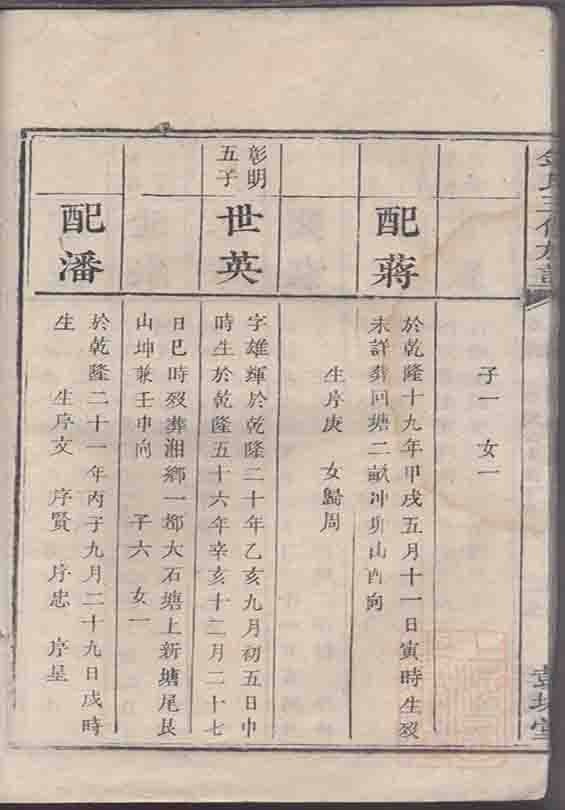 子一 女一
配蔣
於乾隆十九年甲戌五月十一日寅時生歿
未詳葬回塘二畝冲 山酉向
生序庚 女歸周
彰明
五子
世英
字雄輝於乾隆二十年乙亥九月初五日申
時生於乾隆五十六年辛亥十二月二十七
日巳時歿葬湘鄉一都大石塘上新塘尾艮
山坤兼壬申向 子六 女一
配潘
於乾隆二十一年丙子九月二十九日戌時
生 生序文 序賢 序忠 序星